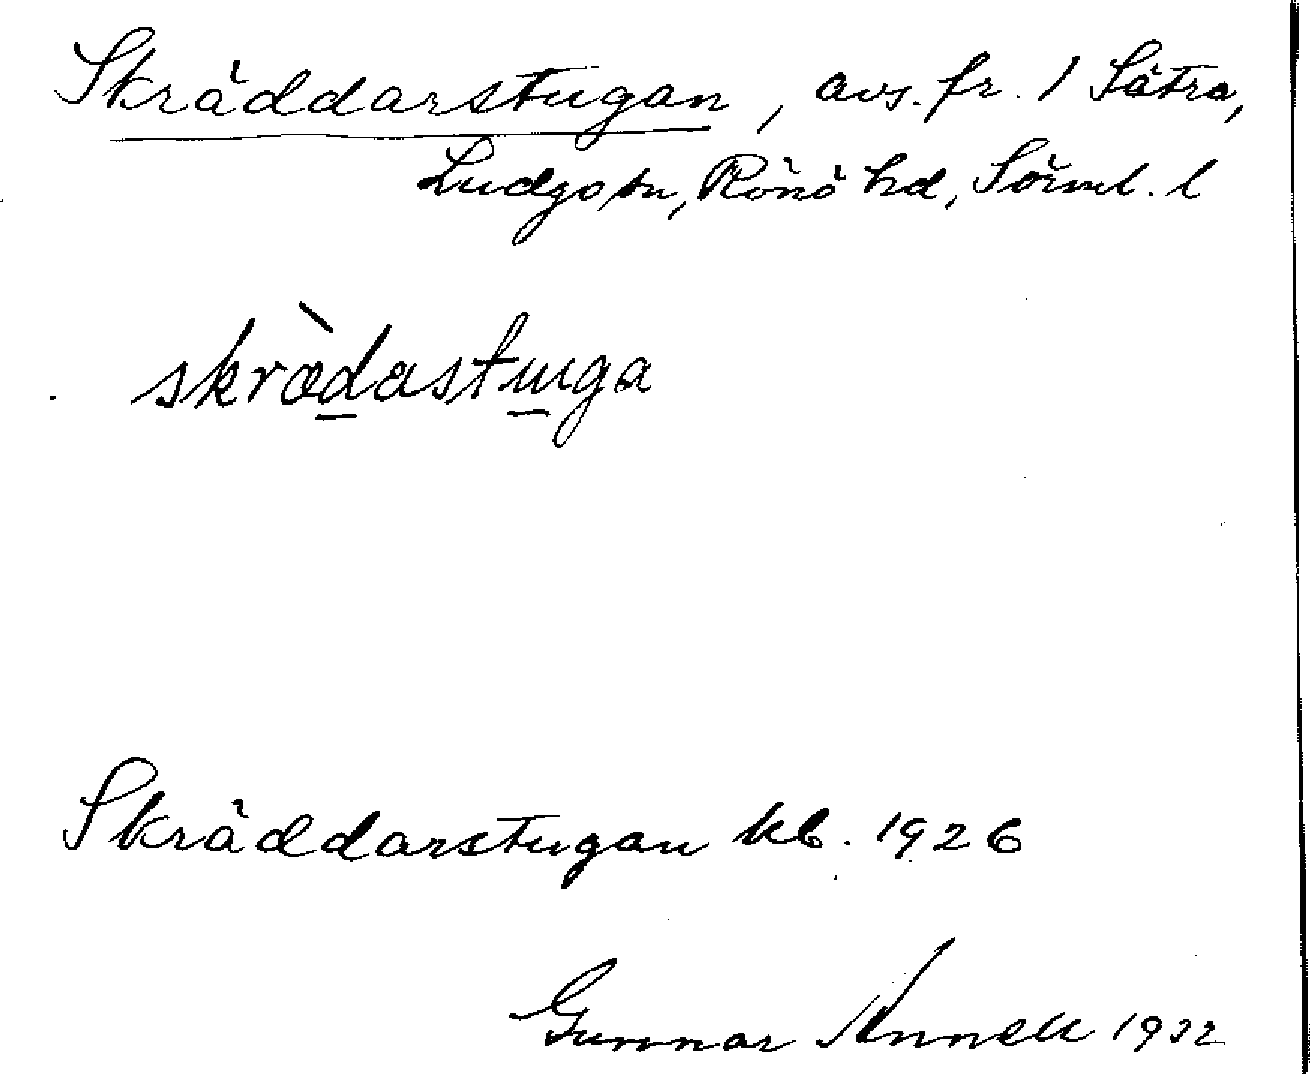 Skräddarstugan, avs. fr. 1 Sätra,
Ludgo sn, Rönö hd, Sörml. l
skrædastuga
Skräddarstugan kb. 1926
Gunnar Annell 1932